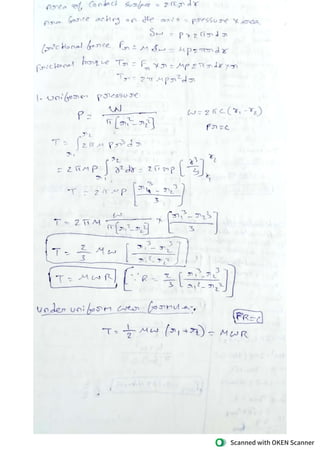 Area of Contact surface = 2πrdr
force acting on the = pressure x area
δw = P x 2πrdr
frictional force, Fr = μ δw = μp2πrdr
frictional torque Tr = Fr x r = μp2πrdr x r
Tr = 2πμpr²dr
1. uniform pressure
P = W / π[r₁²-r₂²]
w = 2πc(r₁-r₂)
Pr = c
T = ∫ 2πμ Pr²dr
= 2πμP ∫ r²dr = 2πμp [r³/3]
T = 2πμP [r₁³-r₂³ / 3]
T = 2πμ W / π[r₁²-r₂²] x [r₁³-r₂³ / 3]
T = 2/3 μW [r₁³-r₂³ / r₁²-r₂²]
T = μWR [∵ R = 2/3 [r₁³-r₂³ / r₁²-r₂²]]
under uniform wear formula.
PR = c
T = 1/2 μW (r₁+r₂) = μWR
Scanned with OKEN Scanner